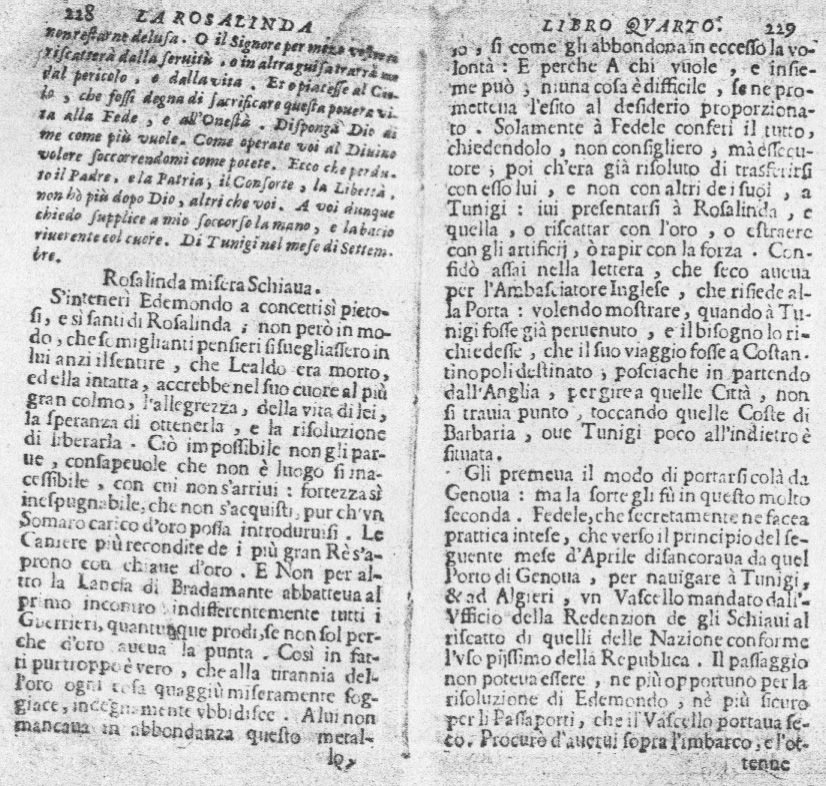 228 LA ROSALINDA
non restarne delusa. O il Signore per mezo vostro
riscatterà dalla seruitù, o in altra guisa trarrà me
dal pericolo, o dalla vita. Et o piacesse al Cie-
lo, che fossi degna di sacrificare questa pouera vi-
ta alla Fede, e all'Onestà. Disponga Dio di
me come più vuole. Come operate voi al Diuino
volere soccorrendomi come potete. Ecco che perdu-
to il Padre, e la Patria, il Consorte, la Libertà,
non hò più dopo Dio, altri che voi. A voi dunque
chiedo supplice a mio soccorso la mano, e la bacio
riuerente col cuore. Di Tunigi nel mese di Settem-
bre.
Rosalinda misera Schiaua.
S'intenerì Edemondo a concetti sì pieto-
si, e sì santi di Rosalinda; non però in mo-
do, che somiglianti pensieri si suegliassero in
lui anzi il sentire, che Lealdo era morto,
ed ella intatta, accrebbe nel suo cuore al più
gran colmo, l'allegrezza, della vita di lei,
la speranza di ottenerla, e la risoluzione
di liberarla. Ciò impossibile non gli par-
ue, consapeuole che non è luogo sì ina-
cessibile, con cui non s'arriui: fortezza sì
inespugnabile, che non s'acquisti, pur ch'vn
Somaro carico d'oro possa introduruisi. Le
Camere più recondite de i più gran Rè s'a-
prono con chiaue d'oro. E Non per al-
tro la Lancia di Bradamante abbatteua al
primo incontro indifferentemente tutti i
Guerrieri, quantunque prodi, se non sol per-
che d'oro aueua la punta. Così in fat-
ti pur troppo è vero, che alla tirannia del-
l'oro ogni cosa quaggiù miseramente sog-
giace, indegnamente vbbidisce. A lui non
mancaua in abbondanza questo metal-
lo,
LIBRO QVARTO. 229
lo, sì come gli abbondona in eccesso la vo-
lontà: E perche A chi vuole, e insie-
me può; niuna cosa è difficile, se ne pro-
metteua l'esito al desiderio proporziona-
to. Solamente à Fedele conferì il tutto,
chiedendolo, non consigliero, mà essecu-
tore; poi ch'era già risoluto di trasferirsi
con esso lui, e non con altri de i suoi, a
Tunigi: iui presentarsi à Rosalinda, e
quella, o riscattar con l'oro, o estraere
con gli artificij, ò rapir con la forza. Con-
fidò assai nella lettera, che seco aueua
per l'Ambasciatore Inglese, che risiede al-
la Porta: volendo mostrare, quando à Tu-
nigi fosse già peruenuto, e il bisogno lo ri-
chiedesse, che il suo viaggio fosse a Costan-
tinopoli destinato; posciache in partendo
dall'Anglia, per gire a quelle Città, non
si trauia punto, toccando quelle Coste di
Barbaria, oue Tunigi poco all'indietro è
situata.
Gli premeua il modo di portarsi colà da
Genoua: ma la sorte gli fù in questo molto
seconda. Fedele, che secretamente ne facea
prattica intese, che verso il principio del se-
guente mese d'Aprile disancoraua da quel
Porto di Genoua, per nauigare à Tunigi,
& ad Algieri, vn Vascello mandato dall'-
Vfficio della Redenzion de gli Schiaui al
riscatto di quelli delle Nazione conforme
l'vso pijssimo della Republica. Il passaggio
non poteua essere, ne più opportuno per la
risoluzione di Edemondo, nè più sicuro
per li Passaporti, che il Vascello portaua se-
co. Procurò d'auerui sopra l'imbarco, e l'ot-
tenne